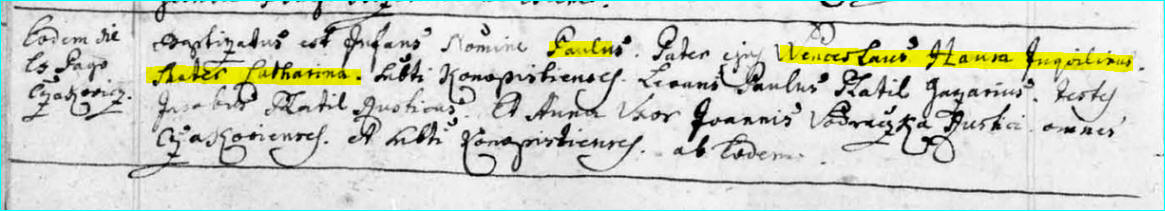 Eodem die
Ex Pago
Czakovicz.
Baptizatus est Infans Nomine Paulus. Pater ejus Wenceslaus Haura Inquilinus.
Mater Catharina. Subti Konopistienses. Levans Paulus Matil Gazarius. Testes
Jacobus Matil Rusticus. Et Anna Uxor Joannis Rustici omnes
Czakovienses. et Subti Konopistienses. ab Eodem.